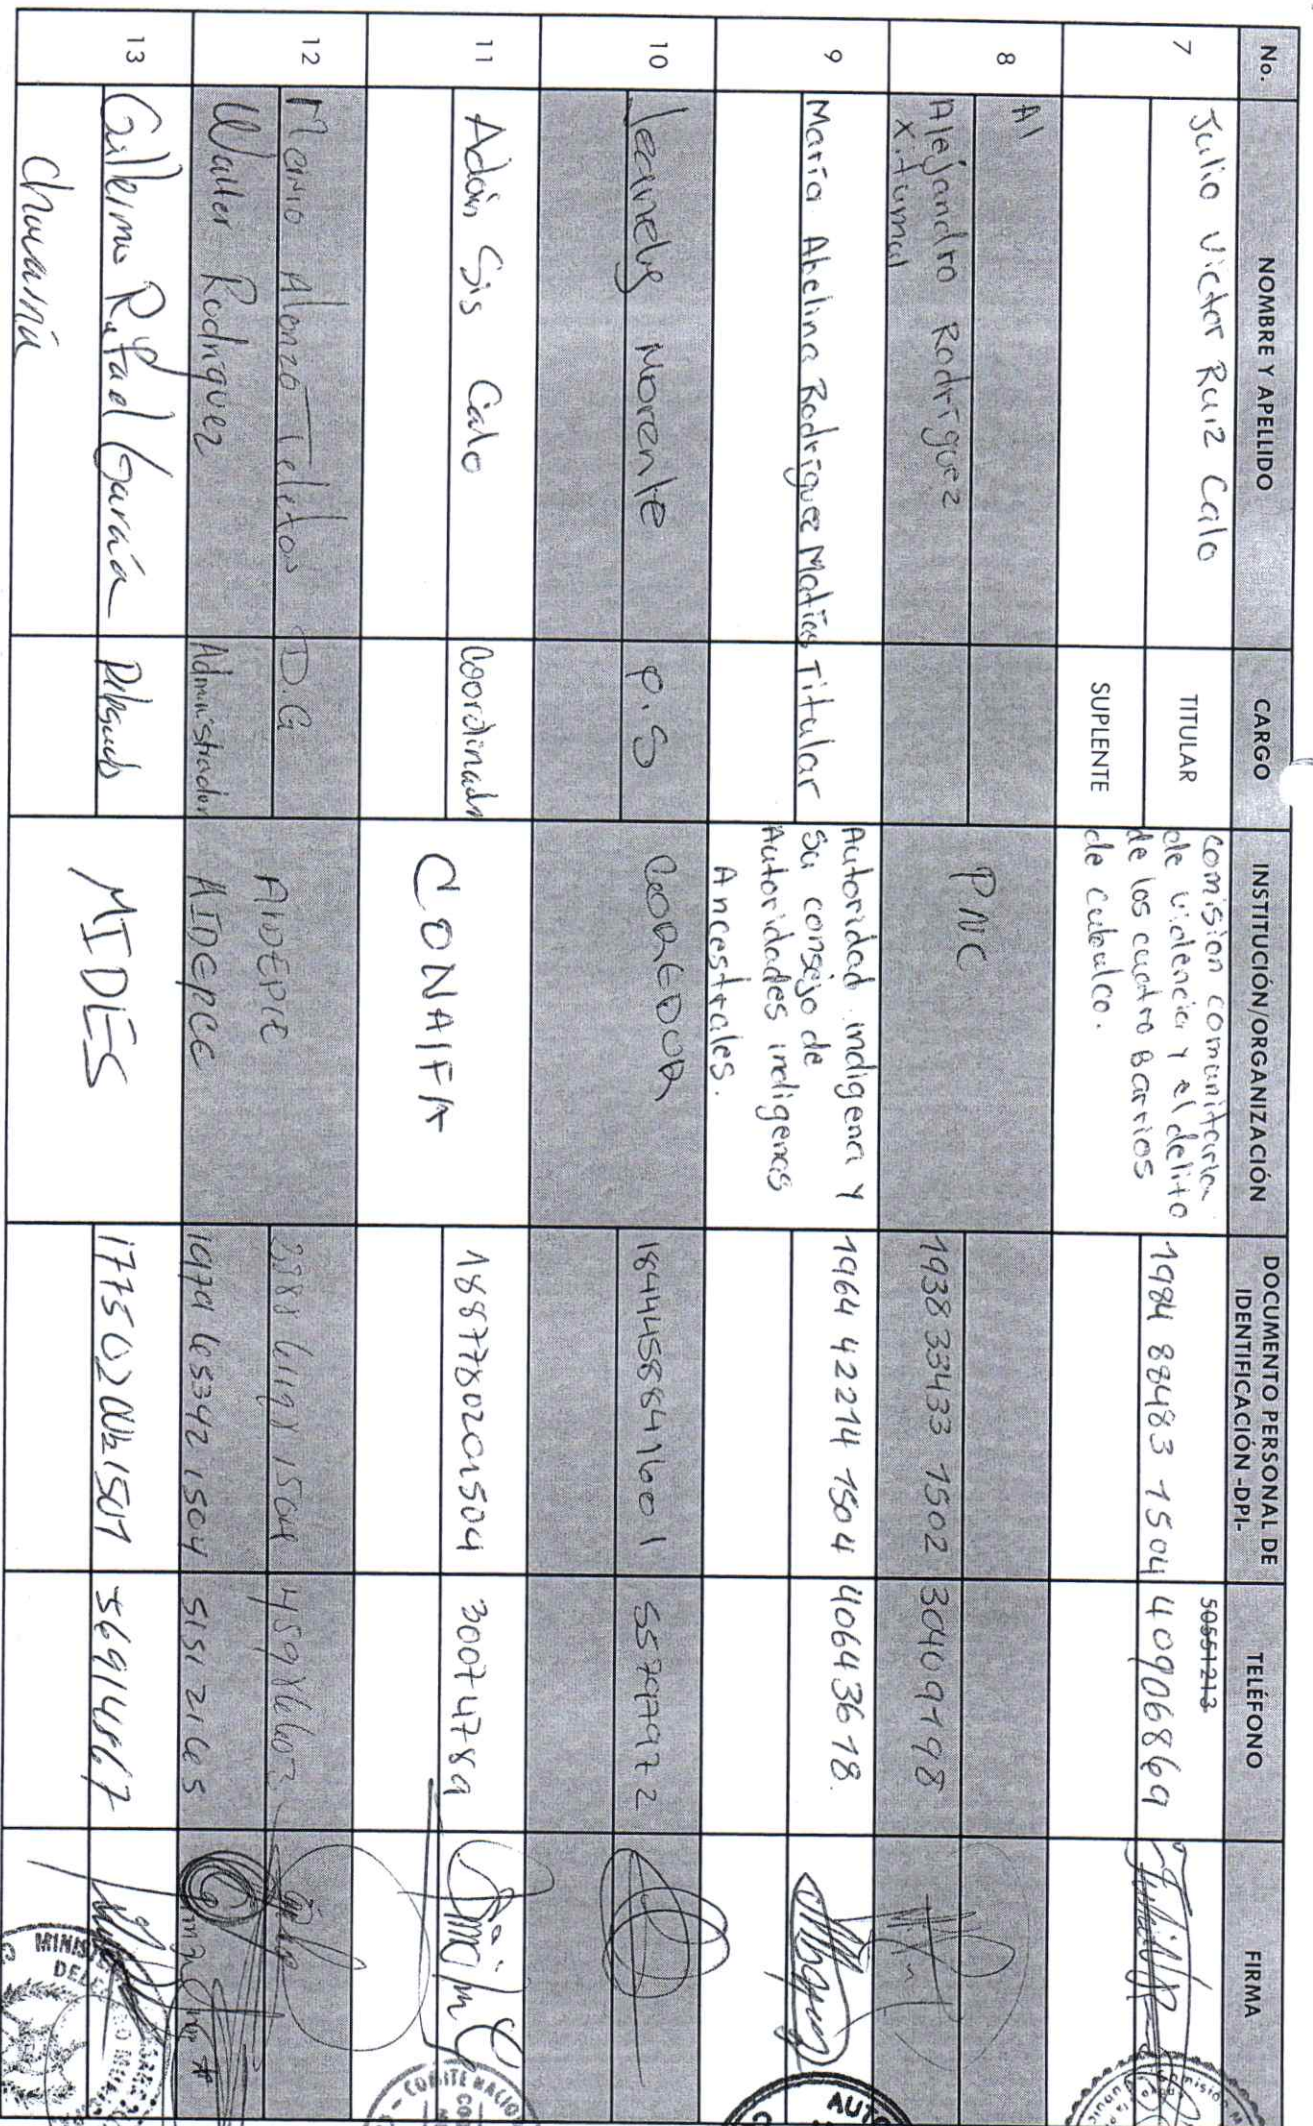 No. NOMBRE Y APELLIDO CARGO INSTITUCIÓN/ORGANIZACIÓN DOCUMENTO PERSONAL DE IDENTIFICACIÓN -DPI- TELÉFONO FIRMA
7 Julio Victor Ruiz Calo TITULAR
SUPLENTE
comision comunitaria
de violencia y el delito
de los cuatro Barrios
de cubulco.
1984 88483 1504
50551213
40906869
8 Al
Alejandro Rodríguez
Xitumul
PNC
1938 33433 1502 30409198
9 María Abelina Rodríguez Matías Titular
Autoridad indigena y
su consejo de
Autoridades indigenas
Ancestrales.
1964 42214 1504 40643618.
10 Morente P.S COREDUR 1844458841601 55797972
11 Adán Sis Calo Coordinador CONAIFA 1887780201504 30074789
12 Mario Alonzo D.G
Walter Rodriguez Administrador AIDEPCE
1979 65342 1504 51512165
13 Guillermo Rafael García
Chavarría
Delegado MIDES
56914867
COMITE NACIO
AUTO
MINIS
DELE